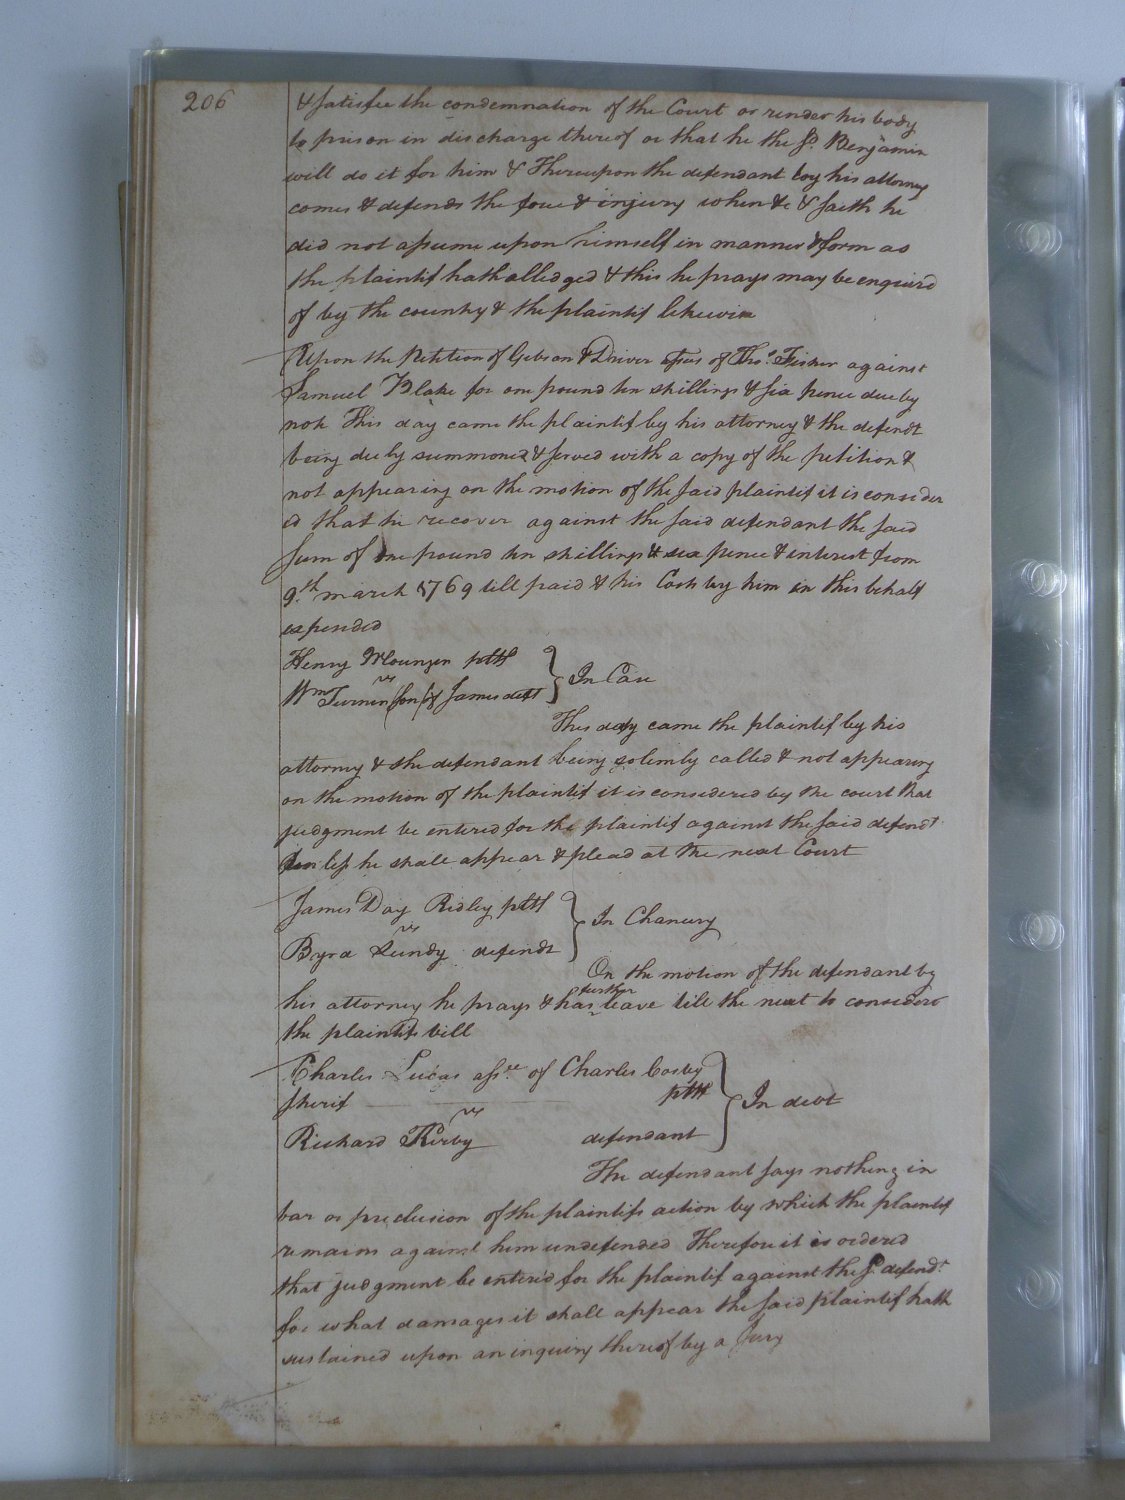 206
& satisfie the condemnation of the Court or render his body
to prison in discharge thereof or that he the sd. Benjamin
will do it for him & Thereupon the defendant by his attorney
comes & defends the force & injury when &c & saith he
did not assume upon himself in manner & form as
the plaintif hath alledged & this he prays may be enquired
of by the country & the plaintif likewise
Upon the Petition of Gibson & Driver of Thos. Fisher against
Samuel Blake for one pound ten shillings & six pence due by
note This day came the plaintif by his attorney & the defendt
being duly summoned & served with a copy of the petition &
not appearing on the motion of the said plaintif it is consider
ed that he recover against the said defendant the said
sum of one pound ten shillings & six pence & interest from
9th. march 1769 till paid & his Costs by him in this behalf
expended
Henry Mounger pltff
vs
Wm Turner (son of James deft
In Case
This day came the plaintif by his
attorney & the defendant being solemly called & not appearing
on the motion of the plaintif it is considered by the court that
judgment be entered for the plaintif against the said defendt
unless he shall appear & plead at the next Court
James Day Ridley pltff
vs
Byrd Lundy defendt
In Chancery
On the motion of the defendant by
his attorney he prays & has further leave till the next to consider
the plaintifs bill
Charles Lucas asse. of Charles Cosby
sherif pltff
vs
Richard Kirby defendant
In debt
The defendant says nothing in
bar or preclusion of the plaintifs action by which the plaintif
remains against him undefended Therefore it is ordered
that judgment be entered for the plaintif against the sd. defendt
for what damages it shall appear the said plaintif hath
sustained upon an inquiry thereof by a Jury